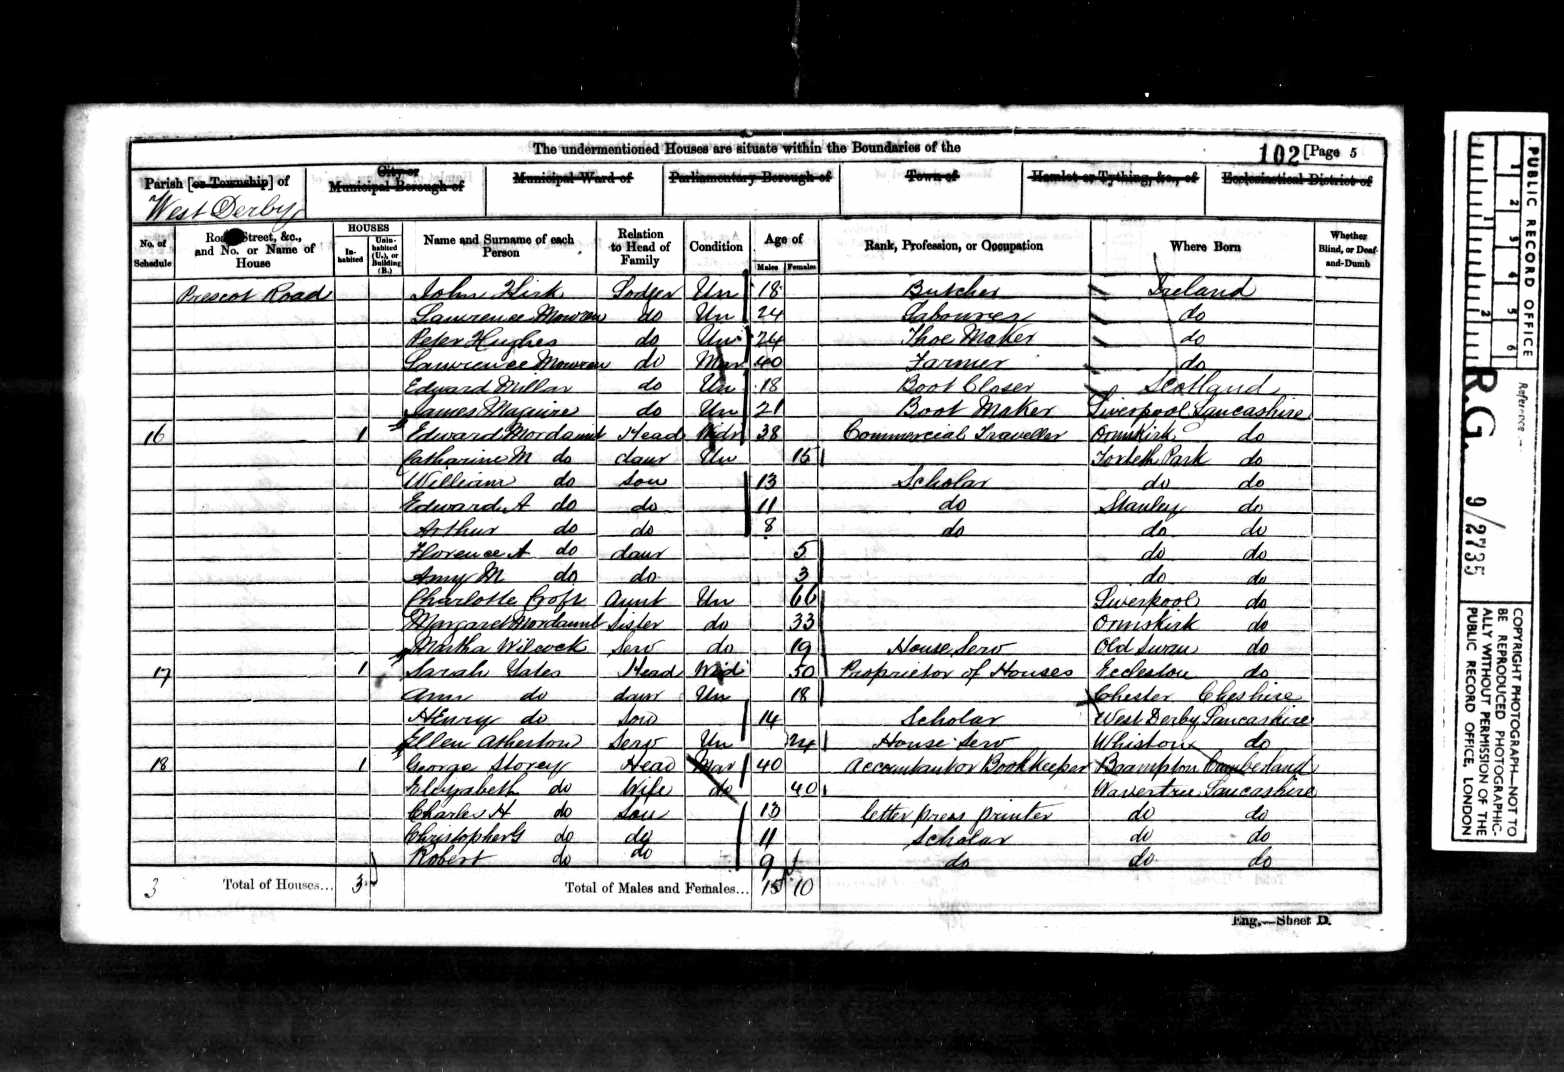 The undermentioned Houses are situate within the Boundaries of the
102 [Page 5
Parish [or Township] of
City or Municipal Borough of
Municipal Ward of
Parliamentary Borough of
Town of
Hamlet or Tything, &c., of
Ecclesiastical District of
West Derby
No. of Schedule
Road, Street, &c., and No. or Name of House
HOUSES
Inhabited
Uninhabited (U.), or Building (B.)
Name and Surname of each Person
Relation to Head of Family
Condition
Age of
Males
Females
Rank, Profession, or Occupation
Where Born
Whether Blind, or Deaf-and-Dumb
Prescot Road John Lodger Un 18 Butcher Ireland
Lawrence do Un 24 Labourer do
Peter Hughes do Un 24 Shoe Maker do
Lawrence do Mar 40 Farmer do
Edward Millar do Un 18 Boot Closer Scotland
James Maguire do Un 21 Boot Maker Liverpool Lancashire
16 1 Edward Mordaunt Head Widr 38 Commercial Traveller Ormskirk do
Catharine M do daur Un 15 Toxteth Park do
William do son 13 Scholar do do
Edward A do do 11 do Stanley do
Arthur do do 8 do do do
Florence A do daur 5 do do
Amy M do do 3 do do
Charlotte Croft Aunt Un 66 Liverpool do
Margaret Mordaunt Sister do 33 Ormskirk do
Martha Wilcock Serv do 19 House Serv Old Swan do
17 1 Sarah Yates Head Wid 50 Proprietor of Houses Eccleston do
Ann do daur Un 18 Chester Cheshire
Henry do Son 14 Scholar West Derby Lancashire
Ellen Atherton Serv Un 24 House Serv Whiston do
18 1 George Storey Head Mar 40 Accountant or Bookkeeper Brampton Cumberland
Elizabeth do Wife do 40 Wavertree Lancashire
Charles H do Son 13 letter press printer do do
Christopher G do do 11 Scholar do do
Robert do do 9 do do do
3 Total of Houses... 3 Total of Males and Females... 15 10
Eng.—Sheet D.
PUBLIC RECORD OFFICE
1 2 3 4 5 6
1 2
Reference :-
R.G. 9/2735
COPYRIGHT PHOTOGRAPH—NOT TO
BE REPRODUCED PHOTOGRAPHIC-
ALLY WITHOUT PERMISSION OF THE
PUBLIC RECORD OFFICE, LONDON